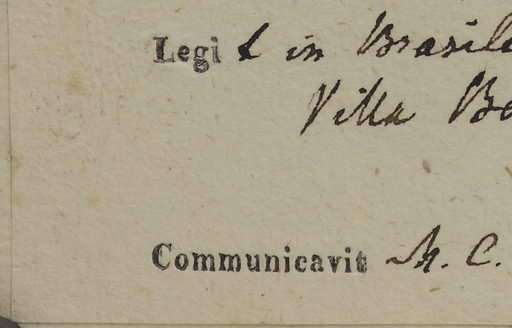 Legit in Brasil
Villa Be
Communicavit M. C.